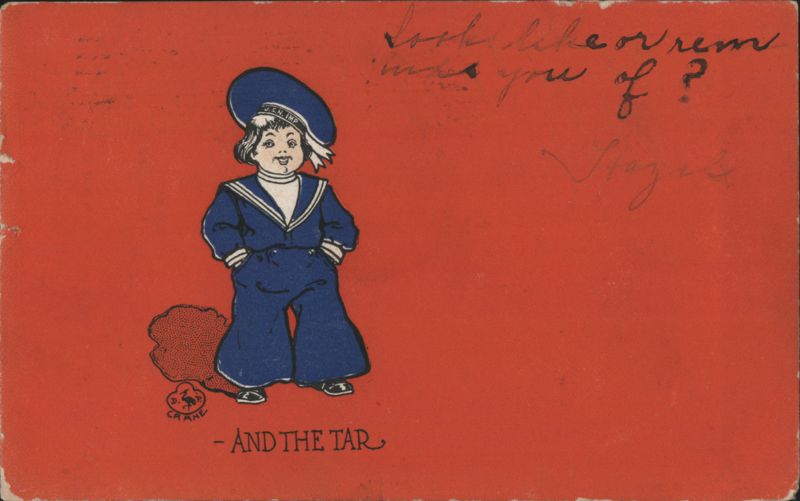 Looks like or rem
inds you of?
U.S.N. IMP
D. P.
CRANE
– AND THE TAR